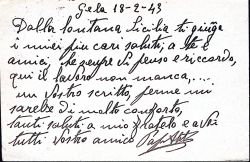 Gela 18-2-43
Dalla lontana Sicilia ti giunga
i miei piu cari saluti, a te e
amici, che sempre vi penso e riccordo,
qui il lavoro non manca,....
un vostro scritto, per me mi
sarebe di molto conforto,
tanti saluti a mio fratello e a voi
tutti vostro amico